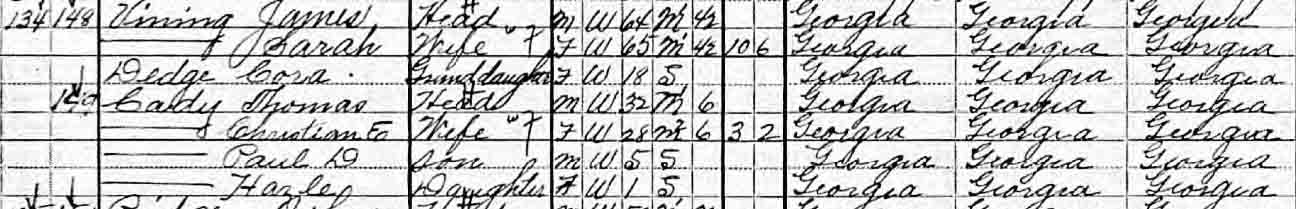 134 148 Vining James Head M W 64 M 42 Georgia Georgia Georgia
Sarah Wife F W 65 M 42 10 6 Georgia Georgia Georgia
Dedge Cora Granddaughter F W 18 S Georgia Georgia Georgia
149 Cardy Thomas Head M W 32 M 6 Georgia Georgia Georgia
Christian E Wife F W 28 M 6 3 2 Georgia Georgia Georgia
Paul D Son M W 5 S Georgia Georgia Georgia
Hazle Daughter F W 1 S Georgia Georgia Georgia